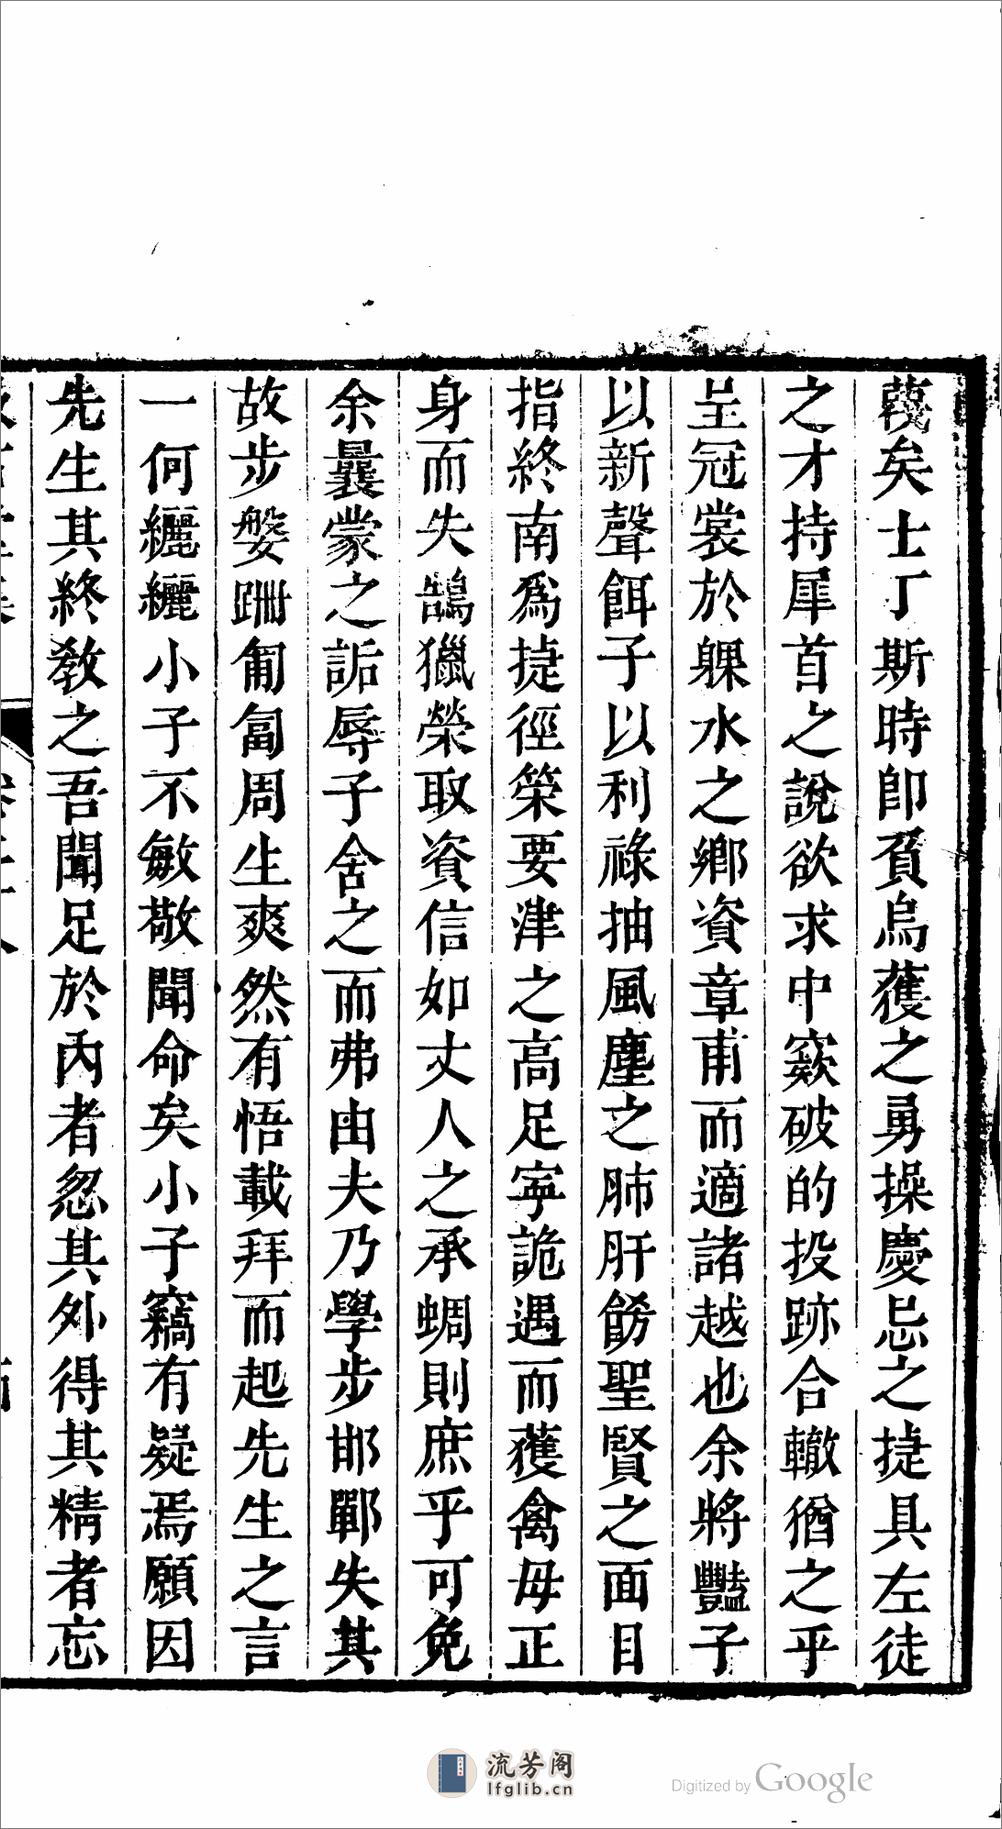 藐矣士丁斯時卽賁烏獲之勇操慶忌之捷具左徒
之才持犀首之說欲求中窾破的投跡合轍猶之乎
呈冠裳於躶水之鄉資章甫而適諸越也余將豔子
以新聲餌子以利祿抽風塵之肺肝餝聖賢之面目
指終南爲捷徑策要津之高足寕詭遇而獲禽毋正
身而失鵠獵榮取資信如丈人之承蜩則庶乎可免
余曩蒙之詬辱子舍之而弗由夫乃學步邯鄲失其
故步媻跚匍匐周生爽然有悟載拜而起先生之言
一何纚纚小子不敏敬聞命矣小子竊有疑焉願因
先生其終敎之吾聞足於內者忽其外得其精者忘
流芳阁
lfglib.cn
Digitized by Google